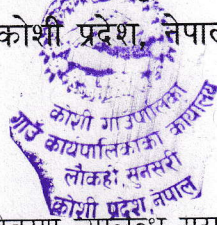 कोशी प्रदेश, नेपाल
कोशी गाउँपालिका
गाउँ कार्यपालिकाको कार्यालय
लौकही, सुनसरी
कोशी प्रदेश, नेपाल